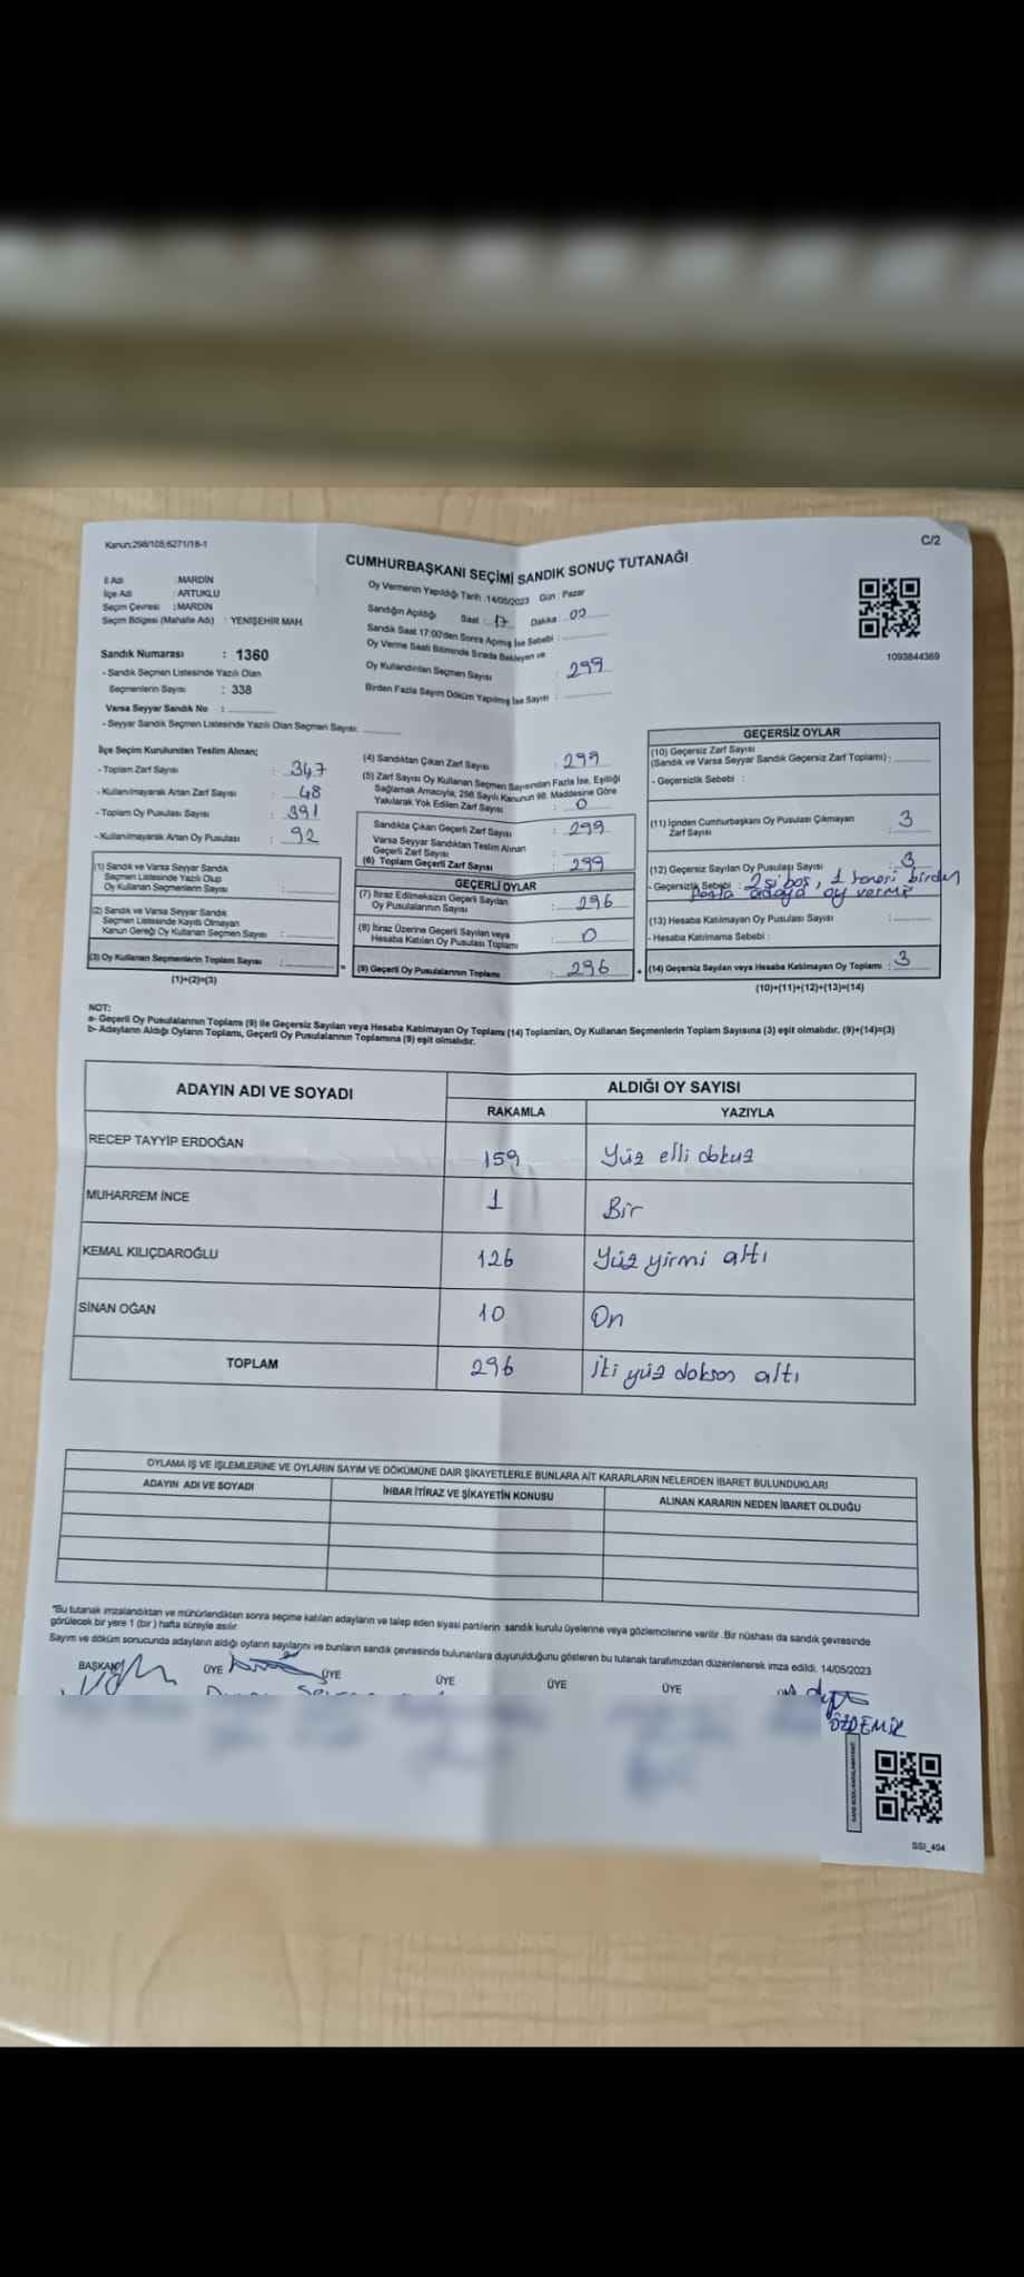 Kanun:298/105;6271/18-1
C/2
CUMHURBAŞKANI SEÇİMİ SANDIK SONUÇ TUTANAĞI
İl Adı : MARDİN
İlçe Adı : ARTUKLU
Seçim Çevresi : MARDİN
Seçim Bölgesi (Mahalle Adı) : YENİŞEHİR MAH.
Sandık Numarası : 1360
- Sandık Seçmen Listesinde Yazılı Olan
Seçmenlerin Sayısı : 338
Varsa Seyyar Sandık No :
- Seyyar Sandık Seçmen Listesinde Yazılı Olan Seçmen Sayısı:
Oy Vermenin Yapıldığı Tarih :14/05/2023 Gün : Pazar
Sandığın Açıldığı Saat : 17 Dakika : 00
Sandık Saat 17:00'den Sonra Açmış İse Sebebi :
Oy Verme Saati Bitiminde Sırada Bekleyen ve
Oy Kullandırılan Seçmen Sayısı : 299
Birden Fazla Sayım Döküm Yapılmış İse Sayısı :
1093844369
İlçe Seçim Kurulundan Teslim Alınan;
- Toplam Zarf Sayısı : 347
- Kullanılmayarak Artan Zarf Sayısı : 48
- Toplam Oy Pusulası Sayısı : 391
- Kullanılmayarak Artan Oy Pusulası : 92
(1) Sandık ve Varsa Seyyar Sandık
Seçmen Listesinde Yazılı Olup
Oy Kullanan Seçmenlerin Sayısı :
(2) Sandık ve Varsa Seyyar Sandık
Seçmen Listesinde Kayıtlı Olmayan
Kanun Gereği Oy Kullanan Seçmen Sayısı :
(3) Oy Kullanan Seçmenlerin Toplam Sayısı :
(1)+(2)=(3)
(4) Sandıktan Çıkan Zarf Sayısı : 299
(5) Zarf Sayısı Oy Kullanan Seçmen Sayısından Fazla İse, Eşitliği
Sağlamak Amacıyla, 298 Sayılı Kanunun 98. Maddesine Göre
Yakılarak Yok Edilen Zarf Sayısı : 0
Sandıkta Çıkan Geçerli Zarf Sayısı : 299
Varsa Seyyar Sandıktan Teslim Alınan
Geçerli Zarf Sayısı :
(6) Toplam Geçerli Zarf Sayısı : 299
GEÇERLİ OYLAR
(7) İtiraz Edilmeksizin Geçerli Sayılan
Oy Pusulalarının Sayısı : 296
(8) İtiraz Üzerine Geçerli Sayılan veya
Hesaba Katılan Oy Pusulası Toplamı : 0
(9) Geçerli Oy Pusulalarının Toplamı : 296
GEÇERSİZ OYLAR
(10) Geçersiz Zarf Sayısı
(Sandık ve Varsa Seyyar Sandık Geçersiz Zarf Toplamı) :
- Geçersizlik Sebebi :
(11) İçinden Cumhurbaşkanı Oy Pusulası Çıkmayan
Zarf Sayısı : 3
(12) Geçersiz Sayılan Oy Pusulası Sayısı : 3
- Geçersizlik Sebebi : 2 si boş, 1 tanesi birden
fazla adaya oy vermiş
(13) Hesaba Katılmayan Oy Pusulası Sayısı :
- Hesaba Katılmama Sebebi :
(14) Geçersiz Sayılan veya Hesaba Katılmayan Oy Toplamı : 3
(10)+(11)+(12)+(13)=(14)
NOT:
a- Geçerli Oy Pusulalarının Toplamı (9) ile Geçersiz Sayılan veya Hesaba Katılmayan Oy Toplamı (14) Toplamları, Oy Kullanan Seçmenlerin Toplam Sayısına (3) eşit olmalıdır. (9)+(14)=(3)
b- Adayların Aldığı Oyların Toplamı, Geçerli Oy Pusulalarının Toplamına (9) eşit olmalıdır.
ADAYIN ADI VE SOYADI
ALDIĞI OY SAYISI
RAKAMLA YAZIYLA
RECEP TAYYİP ERDOĞAN 159 Yüz elli dokuz
MUHARREM İNCE 1 Bir
KEMAL KILIÇDAROĞLU 126 Yüz yirmi altı
SİNAN OĞAN 10 On
TOPLAM 296 İki yüz doksan altı
OYLAMA İŞ VE İŞLEMLERİNE VE OYLARIN SAYIM VE DÖKÜMÜNE DAİR ŞİKAYETLERLE BUNLARA AİT KARARLARIN NELERDEN İBARET BULUNDUKLARI
ADAYIN ADI VE SOYADI İHBAR İTİRAZ VE ŞİKAYETİN KONUSU ALINAN KARARIN NEDEN İBARET OLDUĞU
"Bu tutanak imzalandıktan ve mühürlendikten sonra seçime katılan adayların ve talep eden siyasi partilerin sandık kurulu üyelerine veya gözlemcilerine verilir. Bir nüshası da sandık çevresinde
görülecek bir yere 1 (bir) hafta süreyle asılır.
Sayım ve döküm sonucunda adayların aldığı oyların sayılarını ve bunların sandık çevresinde bulunanlara duyurulduğunu gösteren bu tutanak tarafımızdan düzenlenerek imza edildi. 14/05/2023
BAŞKAN ÜYE ÜYE ÜYE ÜYE ÜYE
ÖZDEMİR
SSI_404